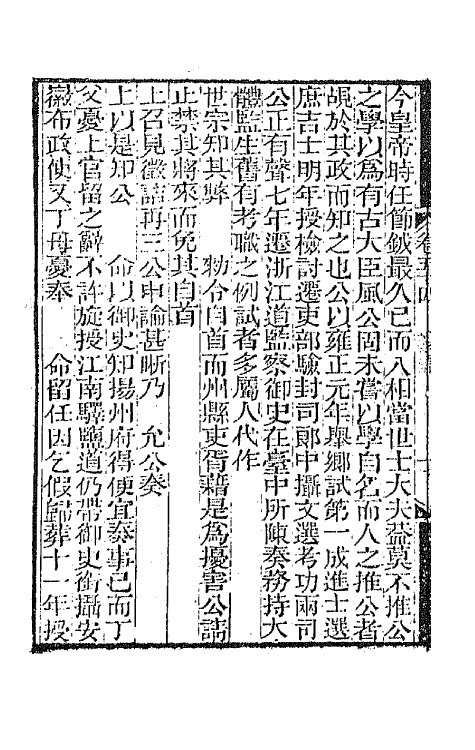 今皇帝時任節鉞最久已而入相當世士大夫益莫不推公
之學以爲有古大臣風公固未嘗以學自名而人之推公者
覘於其政而知之也公以雍正元年舉鄉試第一成進士選
庶吉士明年授檢討遷吏部驗封司郎中攝文選考功兩司
公正有聲七年遷浙江道監察御史在臺中所陳奏務持大
體監生舊有考職之例試者多屬人代作
世宗知其弊 勅令自首而州縣吏胥藉是爲擾害公請
止禁其將來而免其自首
上召見徵詰再三公申論甚晰乃 允公奏
上以是知公 命以御史知揚州府得便宜奏事已而丁
父憂上官留之辭不許旋授江南驛鹽道仍帶御史銜攝安
徽布政使又丁母憂奉 命留任因乞假歸葬十一年授
卷五四